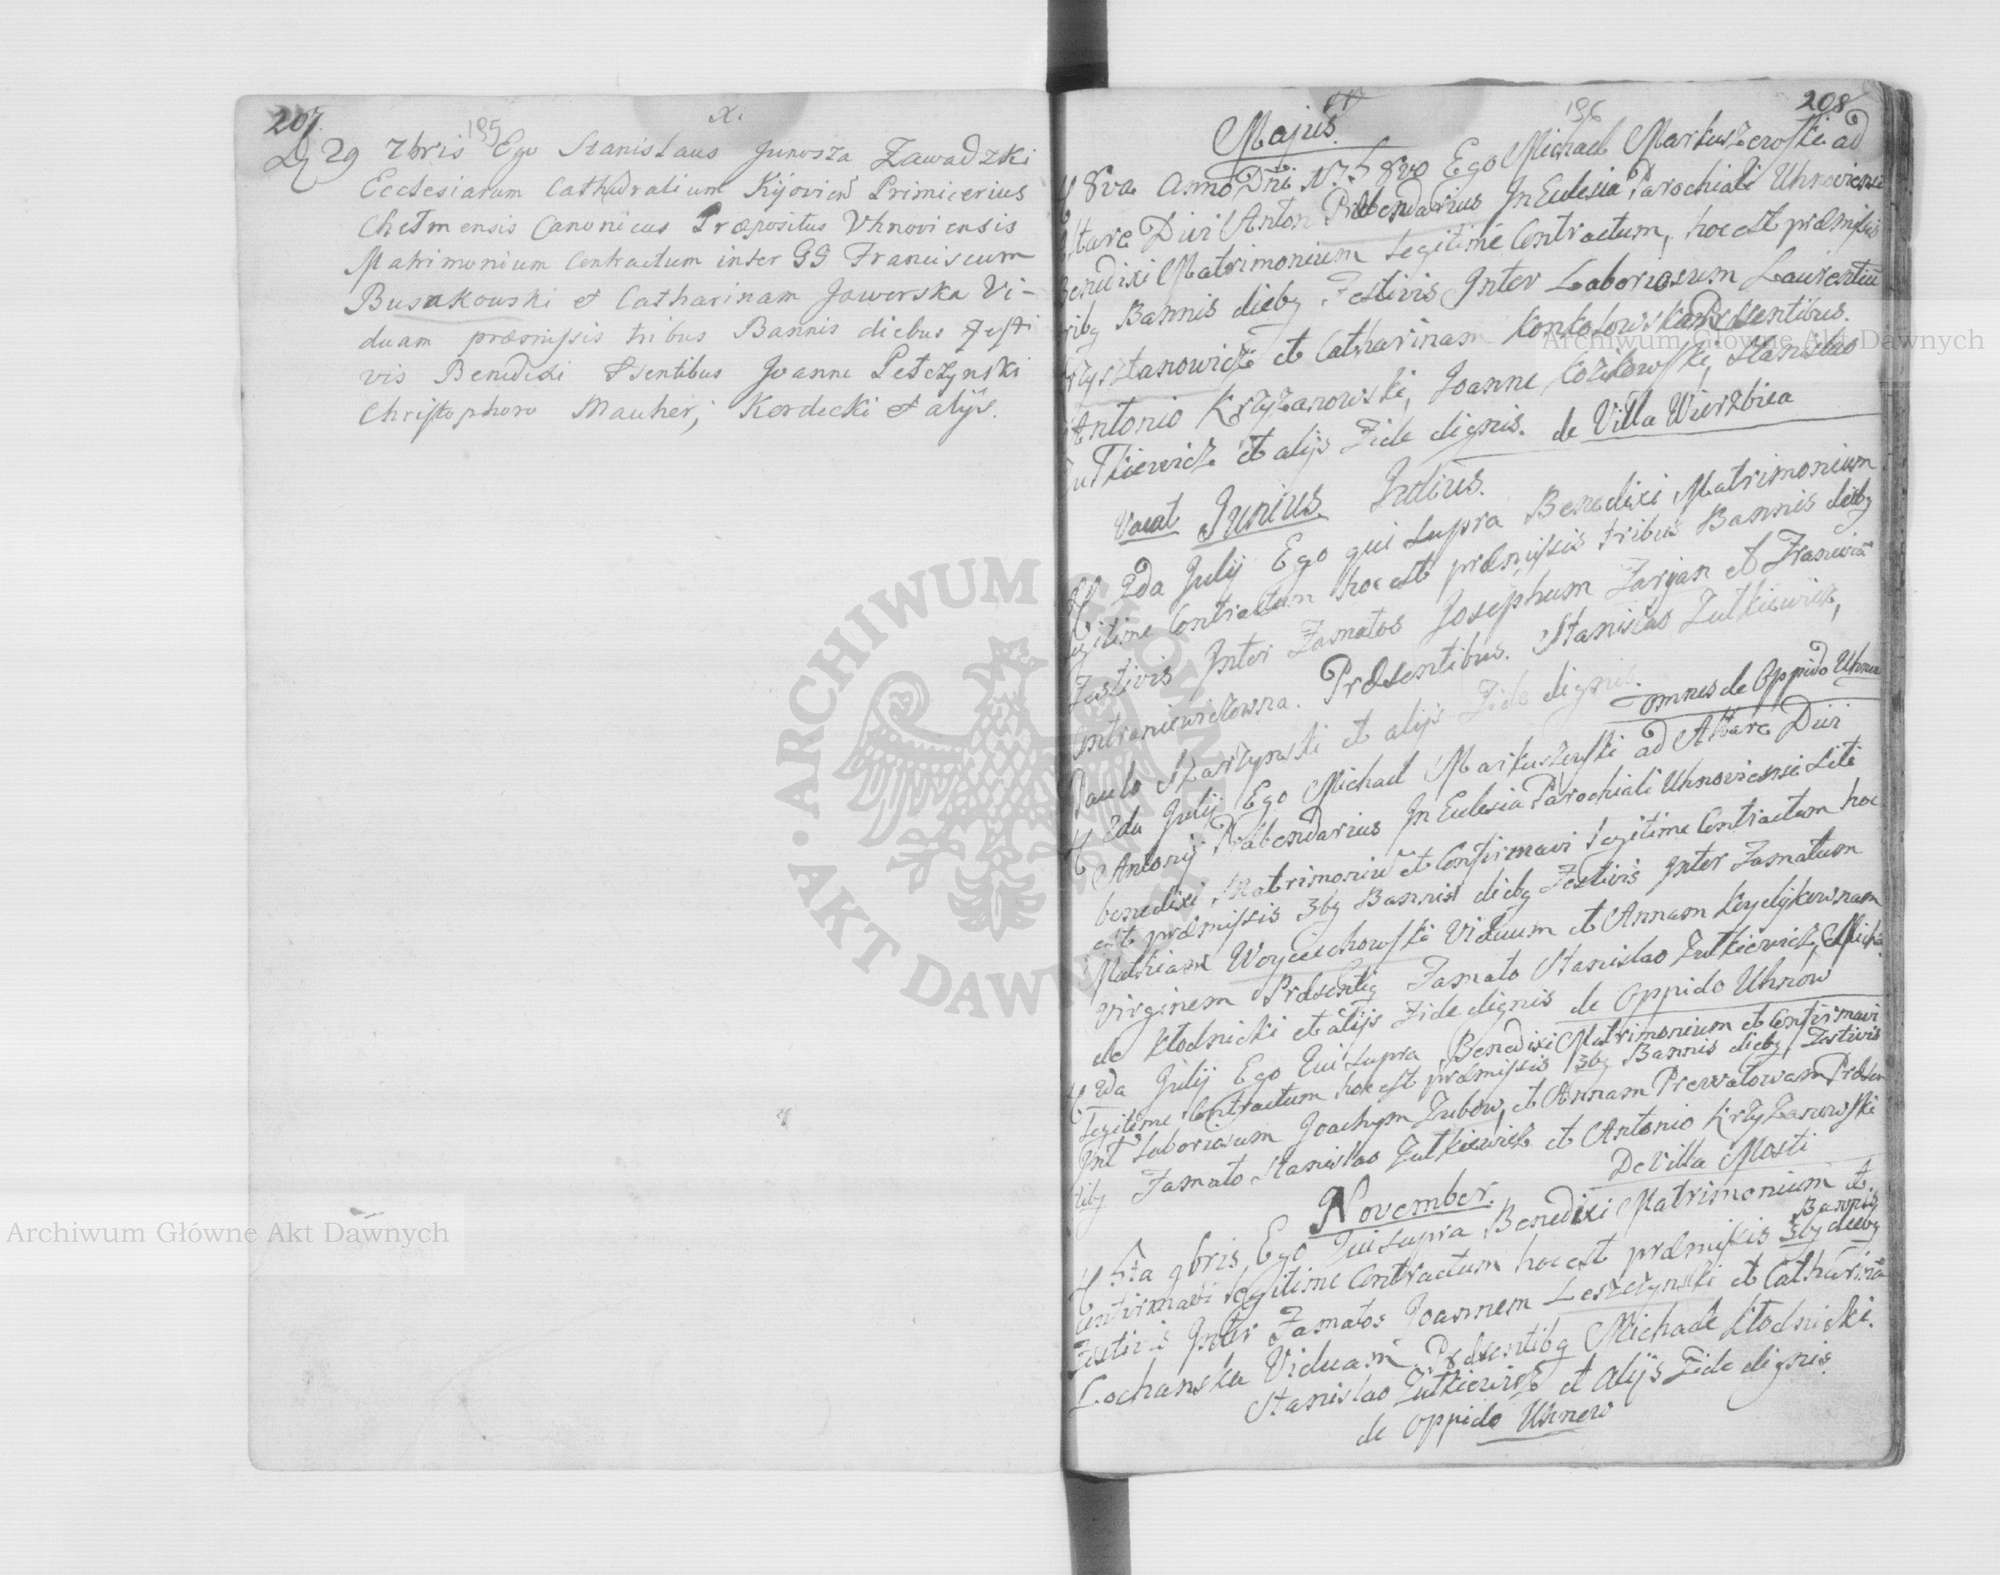 207.
195
x.
D 29 7bris Ego Stanislaus Junosza Zawadzki
Ecclesiarum Cathedralium Kijovien Primicerius
Chelmensis Canonicus Præpositus Uhnoviensis
Matrimonium Contractum inter GG Franciscum
Busakowski et Catharinam Jaworska Vi-
duam præmissis tribus Bannis diebus Festi
vis Benedixi Psentibus Joanne Petczynski
Christophoro Mauher, Kordecki et alijs.
208
196
Majus.
8va Anno Dni 1758vo Ego Michael Markuszewski ad
Altare Divi Anton Præbendarius In Eclesia Parochiali Uhnoviensi
Benedixi Matrimonium Legitime Contractum, hoc est præmissis
Bannis dieby Festivis Inter Laboriosum Laurentiu
Krzysztanowicz et Catharinam Præsentibus.
Antonio Krzyzanowski, Joanne Stanislao
Zutkiewicz et alijs Fide dignis. de Villa Wierzbica
Vacat Junius Julius.
2da Julij Ego qui Supra Benedixi Matrimonium
Legitime Contractum hoc est præmissis tribus Bannis dieby
Festivis Inter Famatos Josephum Faryan et
Præsentibus. Stanislao Zutkiewicz,
Paulo et alijs Fide dignis.
omnes de Oppido Uhnow
2da Julij Ego Michael Markuszewski ad Altare Divi
Antonij Præbendarius In Eclesia Parochiali Uhnoviensi
benedixi Matrimoniu et Confirmavi Legitime Contractum hoc
est præmissis 3by Bannis dieby Festivis Inter Famatum
Mathiam Woyciechowski Viduum et Annam
Virginem Præsentiby Famato Stanislao Zutkiewicz,
de Klodnicki et alijs Fide dignis de Oppido Uhnow
2da Julij Ego Qui Supra Benedixi Matrimonium et Confirmavi
Legitime Contractum hoc est præmissis 3by Bannis dieby Festivis
Int Laboriosum Joachym Zubow, et Annam Præsen
tiby Famato Stanislao Zutkiewicz et Antonio Krzyzanowski
De Villa Mosti
November.
5ta 9bris Ego Qui Supra Benedixi Matrimonium et
Confirmavi Legitime Contractum hoc est præmissis 3by Bannis dieby
Festivis Inter Famatos Joannem Leszczynski et Catharina
Lochanska Viduam Præsentiby Michaele Klodnicki.
Stanislao Zutkiewicz et Alijs Fide dignis.
de Oppido Uhnow
Archiwum Główne Akt Dawnych
Archiwum Główne Akt Dawnych
ARCHIWUM GŁÓWNE AKT DAWNYCH